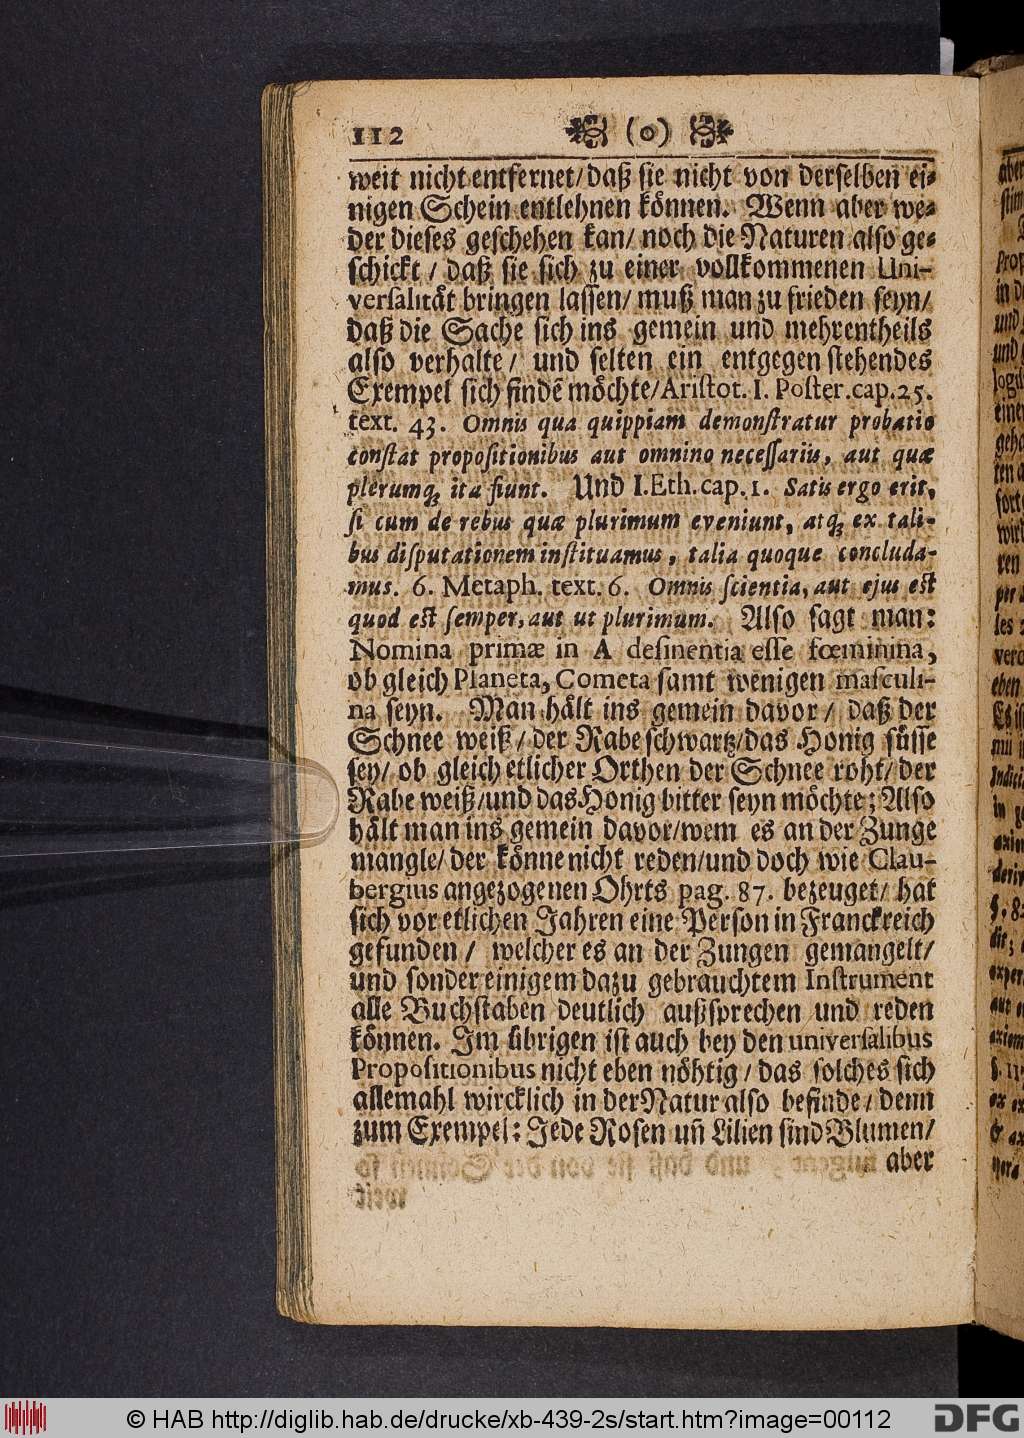 112 (o)
weit nicht entfernet/daß sie nicht von derselben ei⸗
nigen Schein entlehnen können. Wenn aber we⸗
der dieses geschehen kan/ noch die Naturen also ge⸗
schickt / daß sie sich zu einer vollkommenen Uni-
versalität bringen lassen/ muß man zu frieden seyn/
daß die Sache sich ins gemein und mehrentheils
also verhalte/ und selten ein entgegen stehendes
Exempel sich findē möchte/Aristot. I. Poster.cap.25.
text. 43. Omnis qua quippiam demonstratur probatio
constat propositionibus aut omnino necessariis, aut quæ
plerumq; ita fiunt. Und I.Eth.cap.1. Satis ergo erit,
si cum de rebus quæ plurimum eveniunt, atq; ex tali-
bus disputationem instituamus, talia quoque concluda-
mus. 6. Metaph. text. 6. Omnis scientia, aut ejus est
quod est semper, aut ut plurimum. Also sagt man:
Nomina primæ in A desinentia esse fœminina,
ob gleich Planeta, Cometa samt wenigen masculi-
na seyn. Man hält ins gemein davor/ daß der
Schnee weiß/der Rabe schwartz/das Honig süsse
sey/ ob gleich etlicher Orthen der Schnee roht/ der
Rabe weiß/und das Honig bitter seyn möchte; Also
hält man ins gemein davor/wem es an der Zunge
mangle/ der könne nicht reden/und doch wie Clau-
bergius angezogenen Ohrts pag. 87. bezeuget/ hat
sich vor etlichen Jahren eine Person in Franckreich
gefunden / welcher es an der Zungen gemangelt/
und sonder einigem dazu gebrauchtem Instrument
alle Buchstaben deutlich außsprechen und reden
können. Im übrigen ist auch bey den universalibus
Propositionibus nicht eben nöhtig / das solches sich
allemahl wircklich in der Natur also befinde/ denn
zum Exempel: Jede Rosen uñ Lilien sind Blumen/
aber
© HAB http://diglib.hab.de/drucke/xb-439-2s/start.htm?image=00112
DFG